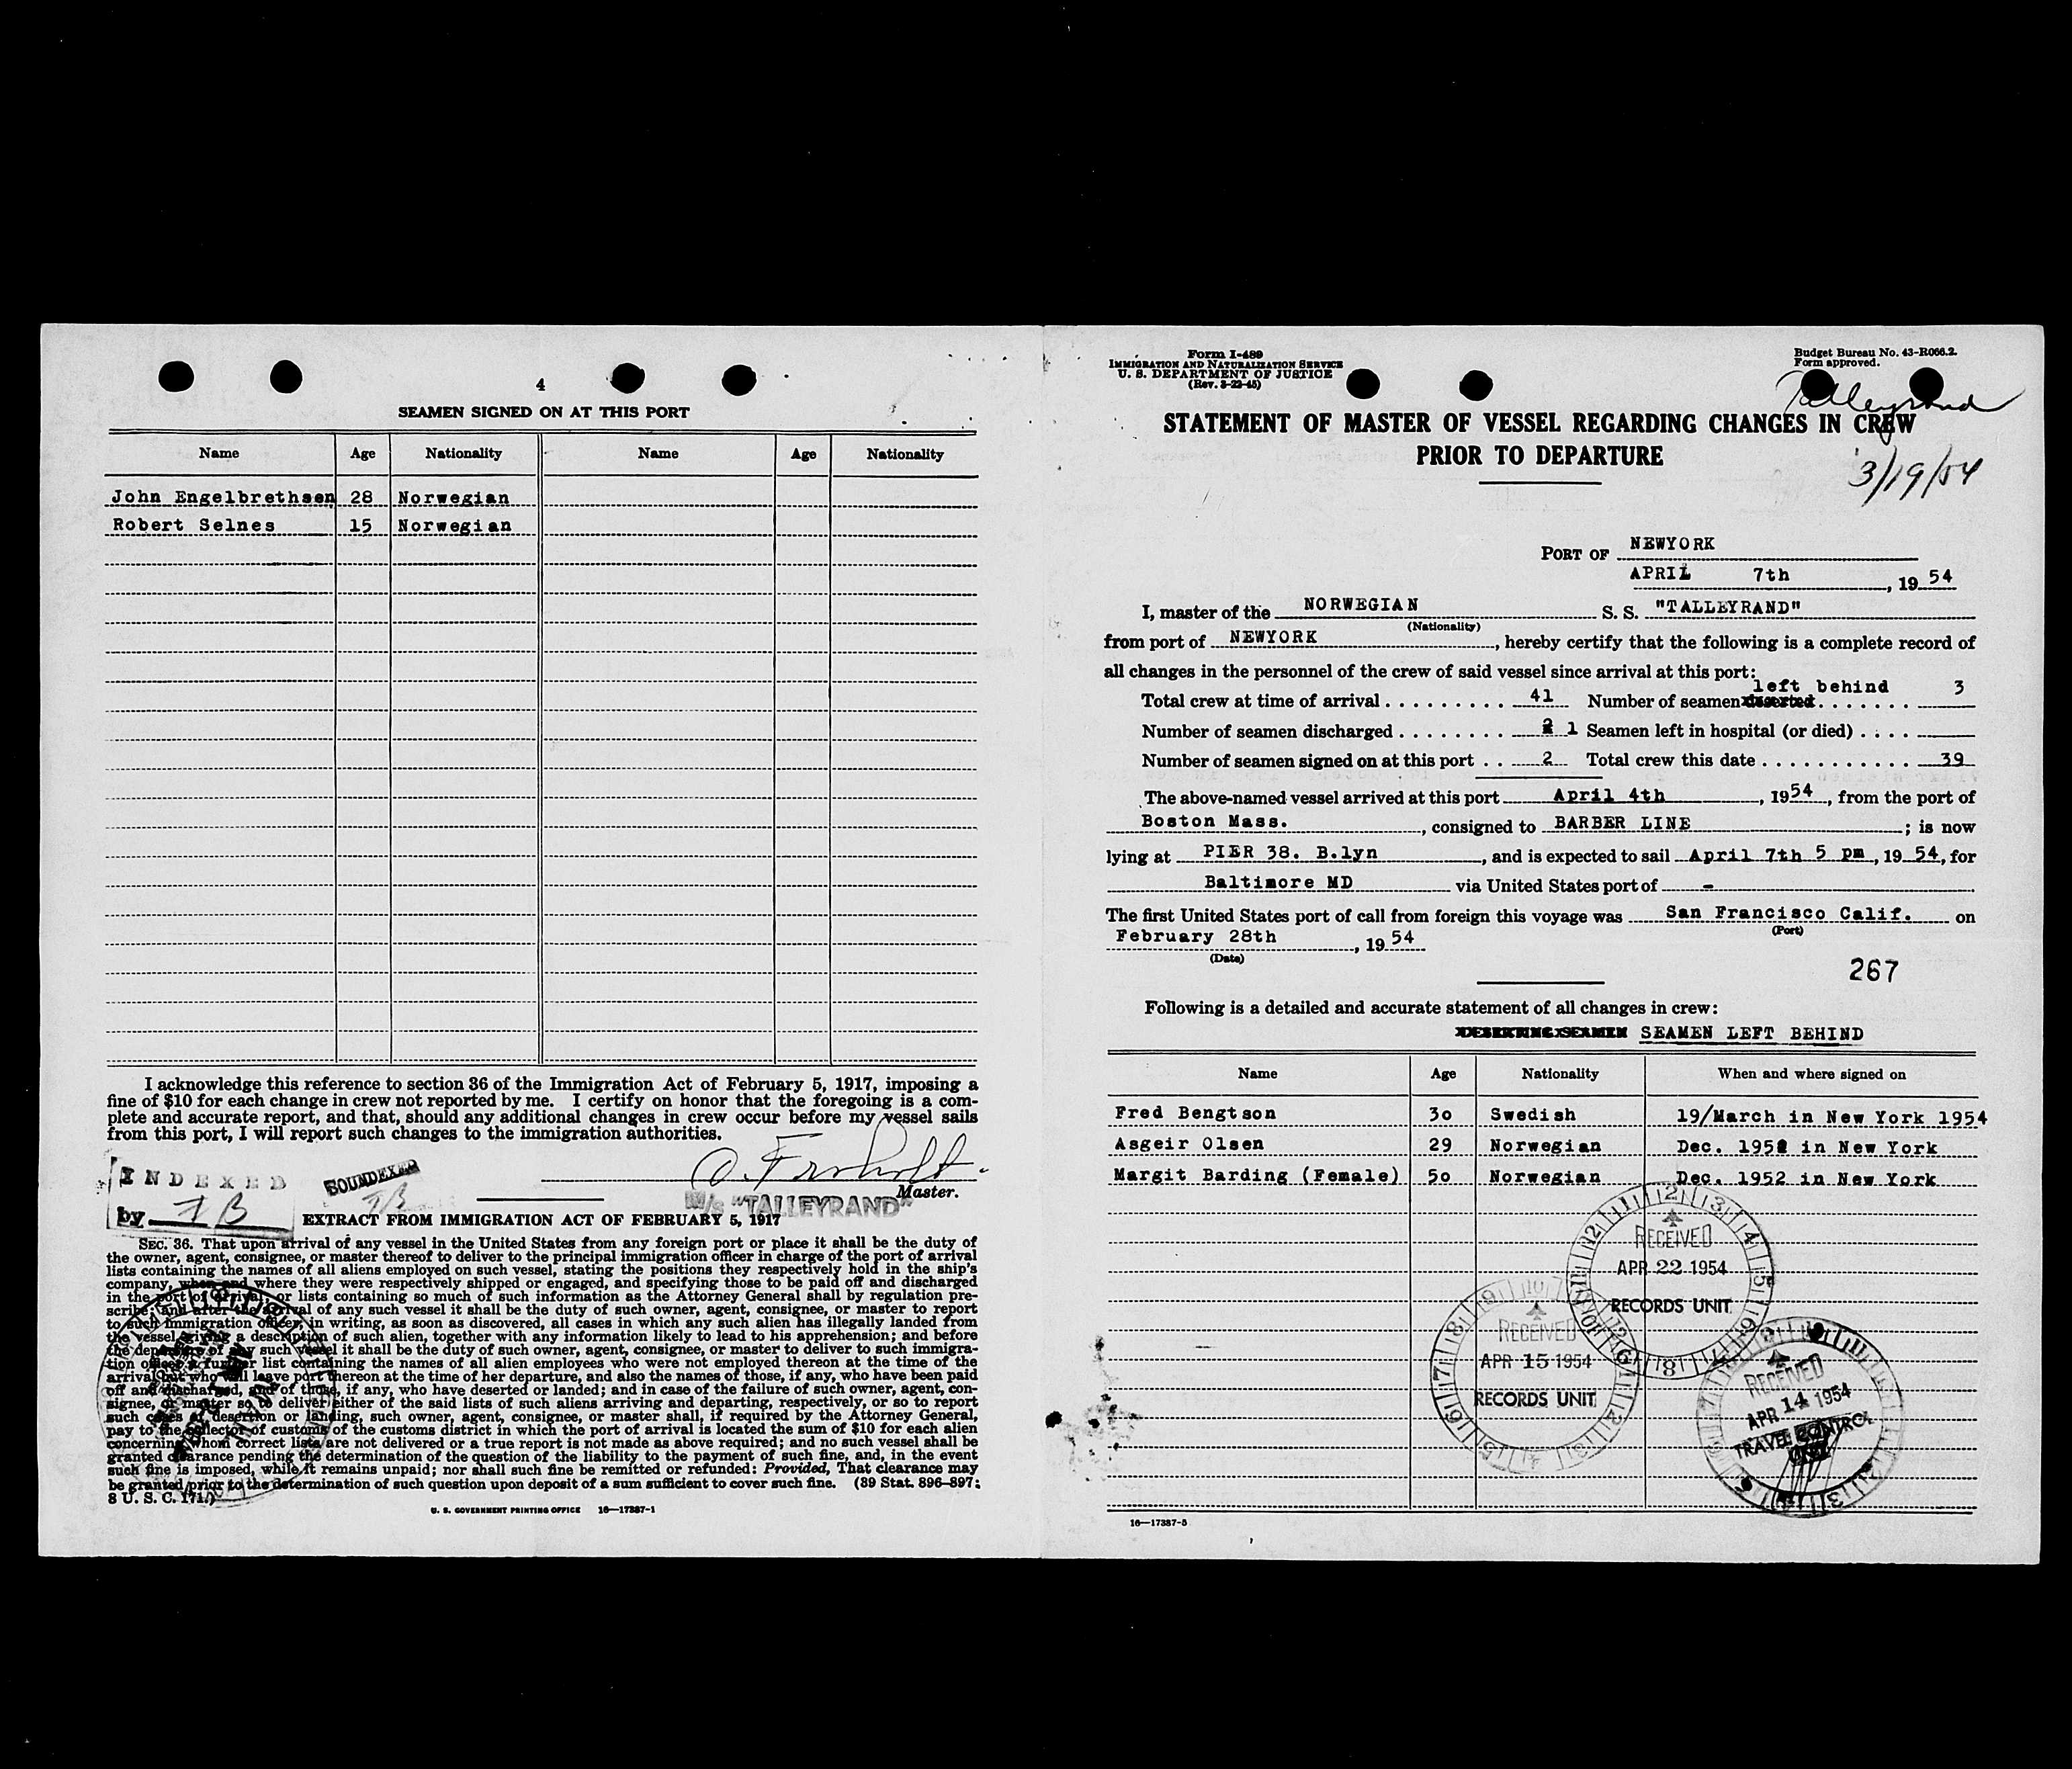 4
SEAMEN SIGNED ON AT THIS PORT
Name Age Nationality Name Age Nationality
John Engelbrethsen 28 Norwegian
Robert Selnes 15 Norwegian
I acknowledge this reference to section 36 of the Immigration Act of February 5, 1917, imposing a
fine of $10 for each change in crew not reported by me. I certify on honor that the foregoing is a com-
plete and accurate report, and that, should any additional changes in crew occur before my vessel sails
from this port, I will report such changes to the immigration authorities.
INDEXED
by
SOUNDEXED
Master.
M/s "TALLEYRAND"
EXTRACT FROM IMMIGRATION ACT OF FEBRUARY 5, 1917
SEC. 36. That upon arrival of any vessel in the United States from any foreign port or place it shall be the duty of
the owner, agent, consignee, or master thereof to deliver to the principal immigration officer in charge of the port of arrival
lists containing the names of all aliens employed on such vessel, stating the positions they respectively hold in the ship's
company, when and where they were respectively shipped or engaged, and specifying those to be paid off and discharged
in the port of arrival; or lists containing so much of such information as the Attorney General shall by regulation pre-
scribe; and after the arrival of any such vessel it shall be the duty of such owner, agent, consignee, or master to report
to such immigration officer, in writing, as soon as discovered, all cases in which any such alien has illegally landed from
the vessel, giving a description of such alien, together with any information likely to lead to his apprehension; and before
the departure of any such vessel it shall be the duty of such owner, agent, consignee, or master to deliver to such immigra-
tion officer a further list containing the names of all alien employees who were not employed thereon at the time of the
arrival but who will leave port thereon at the time of her departure, and also the names of those, if any, who have been paid
off and discharged, and of those, if any, who have deserted or landed; and in case of the failure of such owner, agent, con-
signee, or master so to deliver either of the said lists of such aliens arriving and departing, respectively, or so to report
such cases of desertion or landing, such owner, agent, consignee, or master shall, if required by the Attorney General,
pay to the collector of customs of the customs district in which the port of arrival is located the sum of $10 for each alien
concerning whom correct lists are not delivered or a true report is not made as above required; and no such vessel shall be
granted clearance pending the determination of the question of the liability to the payment of such fine, and, in the event
such fine is imposed, while it remains unpaid; nor shall such fine be remitted or refunded: Provided, That clearance may
be granted prior to the determination of such question upon deposit of a sum sufficient to cover such fine. (39 Stat. 896-897;
8 U. S. C. 171.)
U. S. GOVERNMENT PRINTING OFFICE 16—17387-1
Form I-489
IMMIGRATION AND NATURALIZATION SERVICE
U. S. DEPARTMENT OF JUSTICE
(Rev. 3-22-45)
Budget Bureau No. 43-R066.2.
Form approved.
Talleyrand
STATEMENT OF MASTER OF VESSEL REGARDING CHANGES IN CREW
PRIOR TO DEPARTURE
3/19/54
PORT OF NEWYORK
APRIL 7th, 19 54
I, master of the NORWEGIAN S. S. "TALLEYRAND"
(Nationality)
from port of NEWYORK, hereby certify that the following is a complete record of
all changes in the personnel of the crew of said vessel since arrival at this port:
Total crew at time of arrival . . . . . . . . . . 41 Number of seamen deserted left behind . . . . . . . 3
Number of seamen discharged . . . . . . . . 2 1 Seamen left in hospital (or died) . . . .
Number of seamen signed on at this port . . 2 Total crew this date . . . . . . . . . . . 39
The above-named vessel arrived at this port April 4th, 1954, from the port of
Boston Mass., consigned to BARBER LINE; is now
lying at PIER 38. B.lyn, and is expected to sail April 7th 5 pm, 1954, for
Baltimore MD via United States port of -
The first United States port of call from foreign this voyage was San Francisco Calif. on
(Port)
February 28th, 19 54
(Date)
267
Following is a detailed and accurate statement of all changes in crew:
DESERTING SEAMEN SEAMEN LEFT BEHIND
Name Age Nationality When and where signed on
Fred Bengtson 30 Swedish 19/March in New York 1954
Asgeir Olsen 29 Norwegian Dec. 1952 in New York
Margit Barding (Female) 50 Norwegian Dec. 1952 in New York
RECEIVED
APR 22 1954
RECORDS UNIT
RECEIVED
APR 15 1954
RECORDS UNIT
RECEIVED
APR 14 1954
TRAVEL CONTROL
16—17387-5